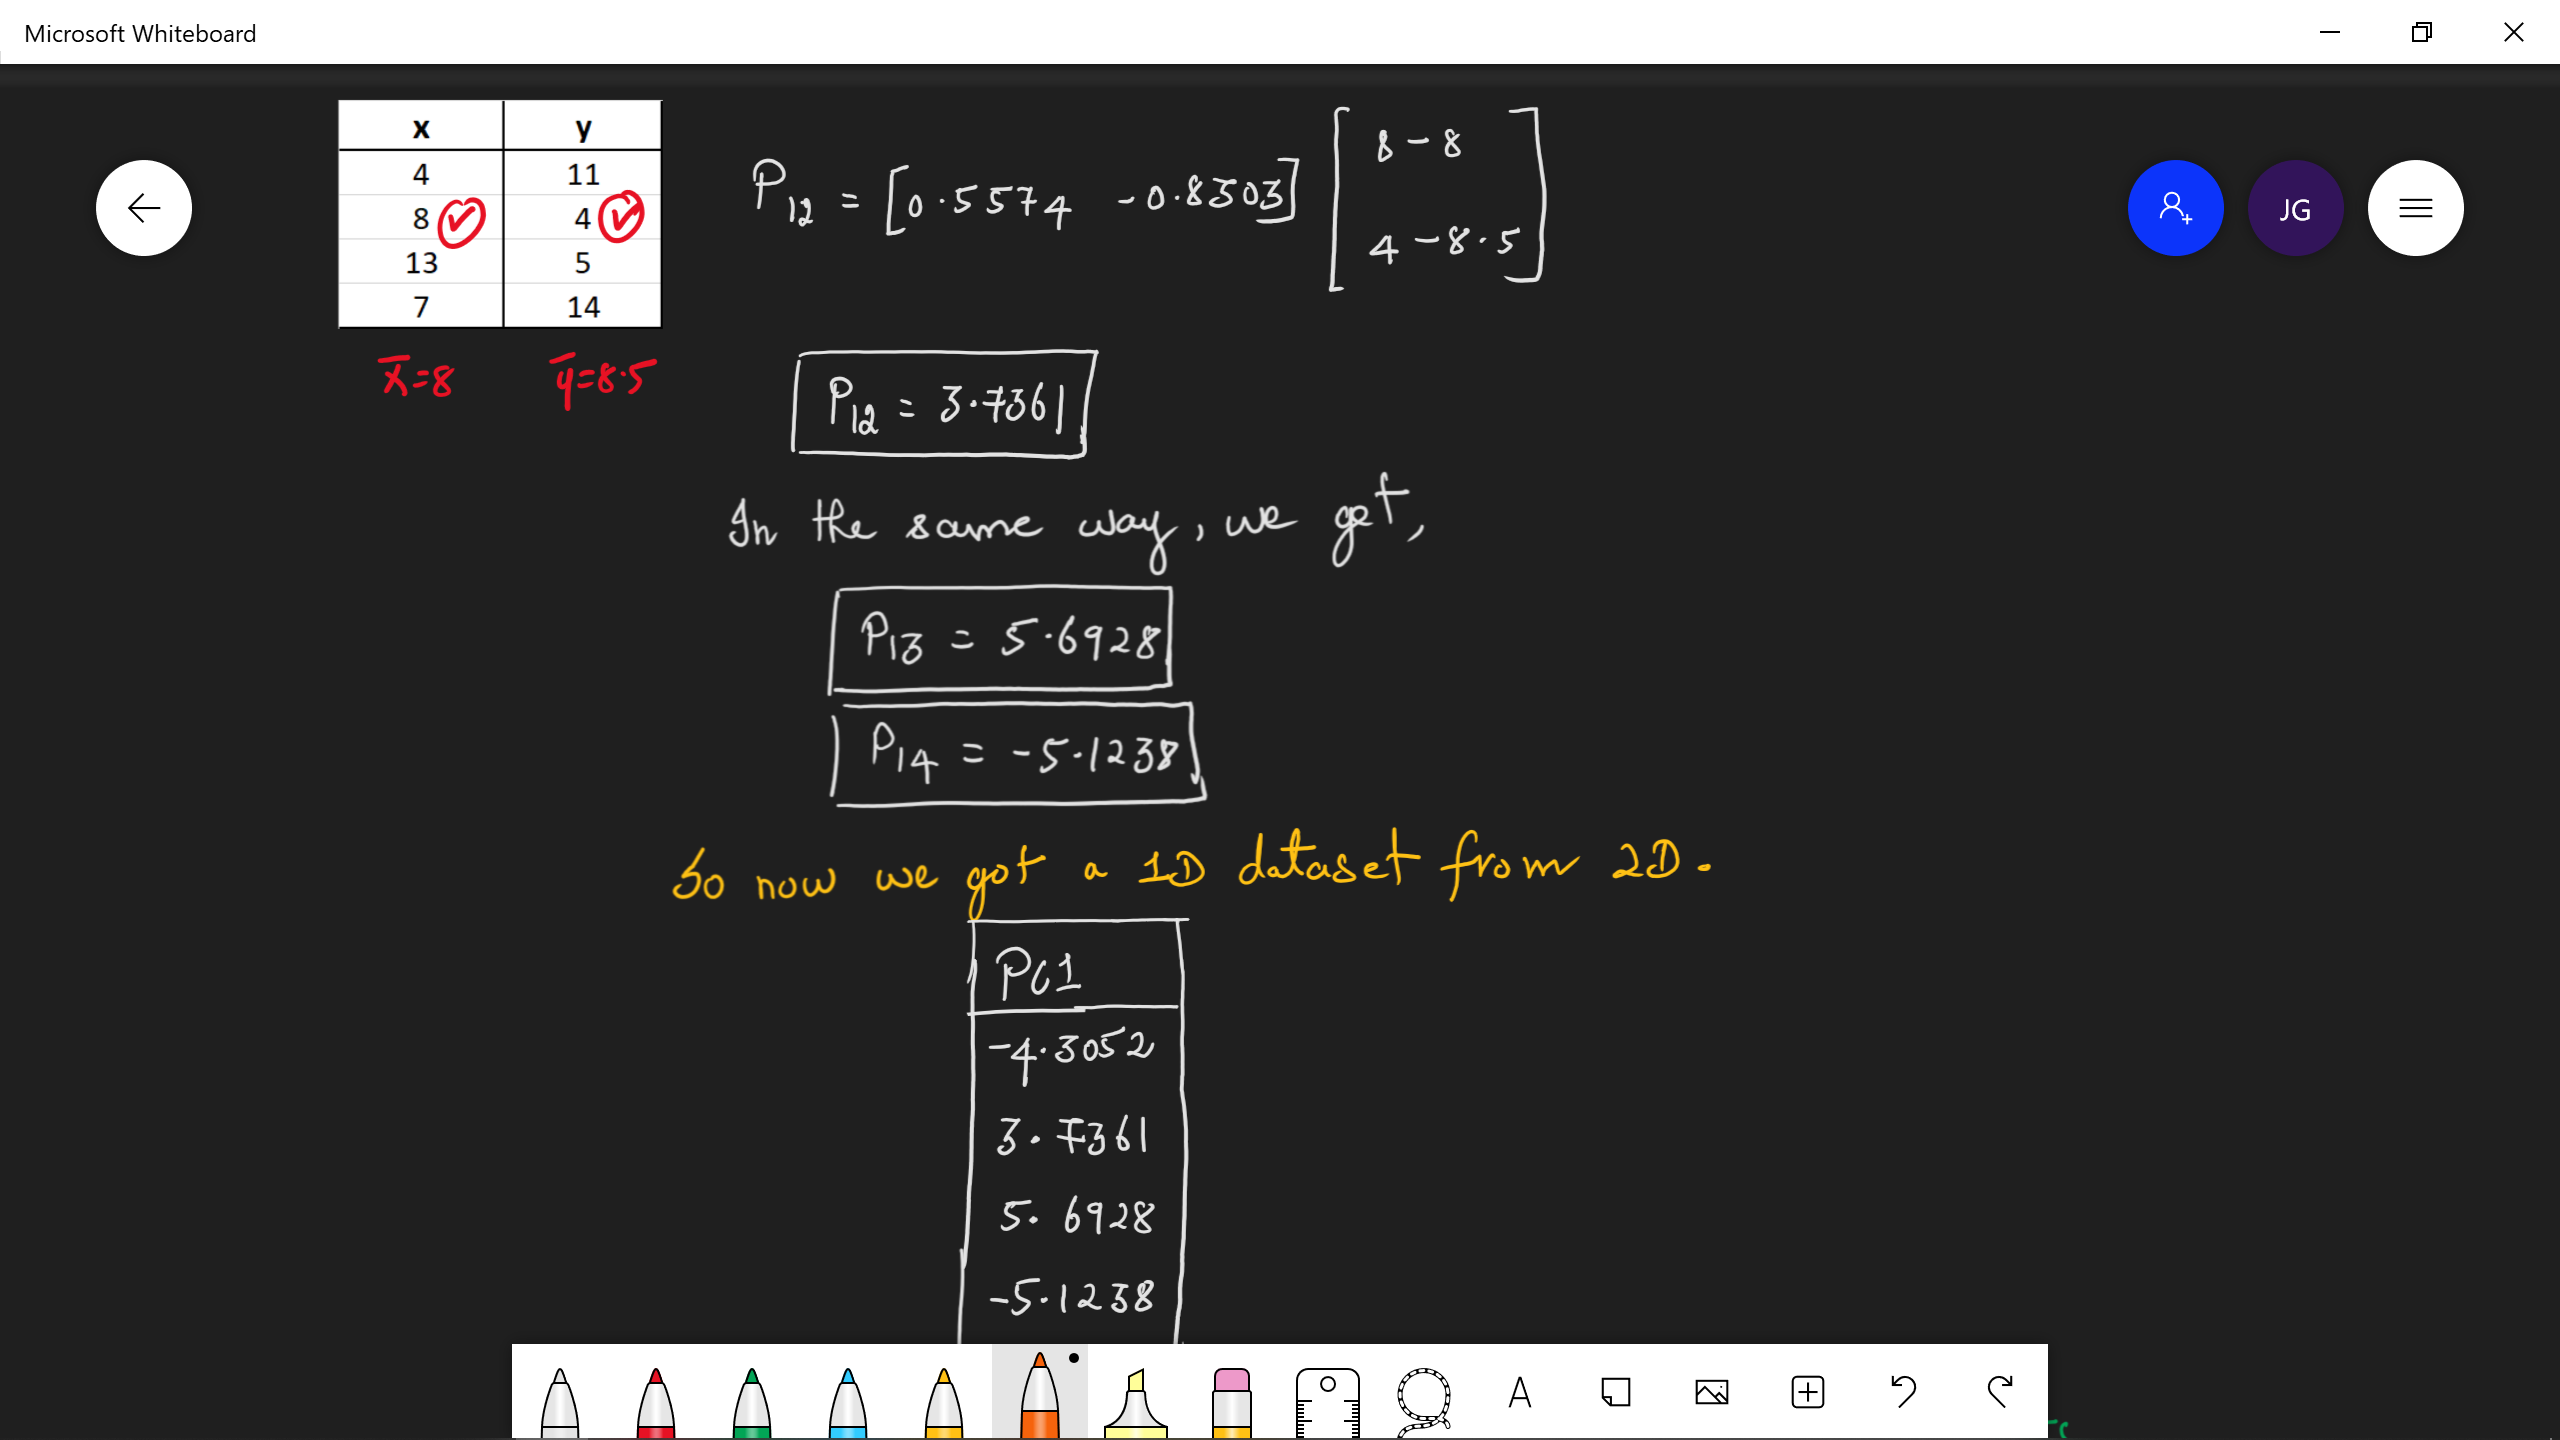 Microsoft Whiteboard
x y
4 11
8 4
13 5
7 14
x̄=8 ȳ=8.5
P12 = [0.5574 -0.8303] [8-8
4-8.5]
P12 = 3.7361
In the same way, we get,
P13 = 5.6928
P14 = -5.1238
So now we got a 1D dataset from 2D.
PC1
-4.3052
3.7361
5.6928
-5.1238
JG
A